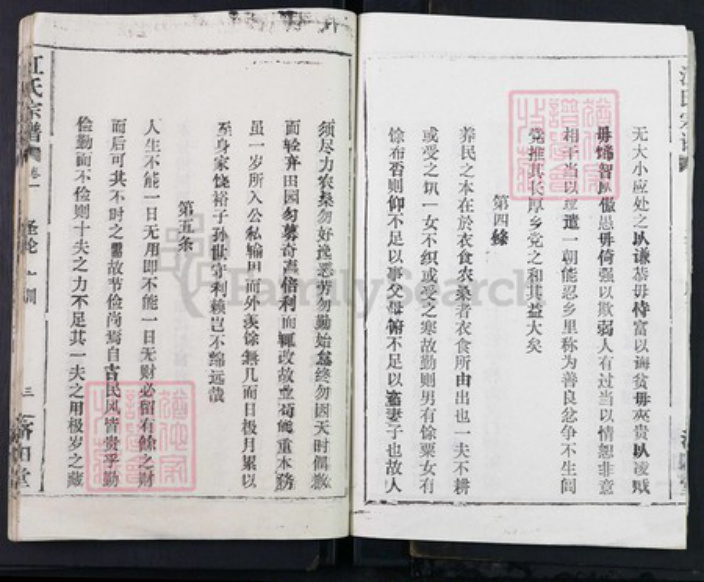 无大小应处之以谦恭毋恃富以诲贫毋夹贵以凌贱
毋饰智以傲愚毋倚强以欺弱人有过当以情恕非意
相干当以理遣一朝能忍乡里称为善良忿争不生闾
党推其长厚乡党之和其益大矣
第四条
养民之本在於衣食农桑者衣食所由出也一夫不耕
或受之饥一女不织或受之寒故勤则男有馀粟女有
馀布否则仰不足以事父母俯不足以畜妻子也故人
须尽力农桑勿好逸恶劳勿勤始怠终勿因天时偶歉
而轻弃田园勿慕奇赢倍利而辄改故业苟能重本务
虽一岁所入公私输用而外羡馀无几而日积月累以
至身家饶裕子孙世守利赖岂不绵远哉
第五条
人生不能一日无用即不能一日无财必留有馀之财
而后可共不时之需故节俭尚焉自古民风皆贵乎勤
俭勤而不俭则十夫之力不足其一夫之用极岁之藏
江氏宗谱
卷一
圣谕
训
三
济阳堂
FamilySearch